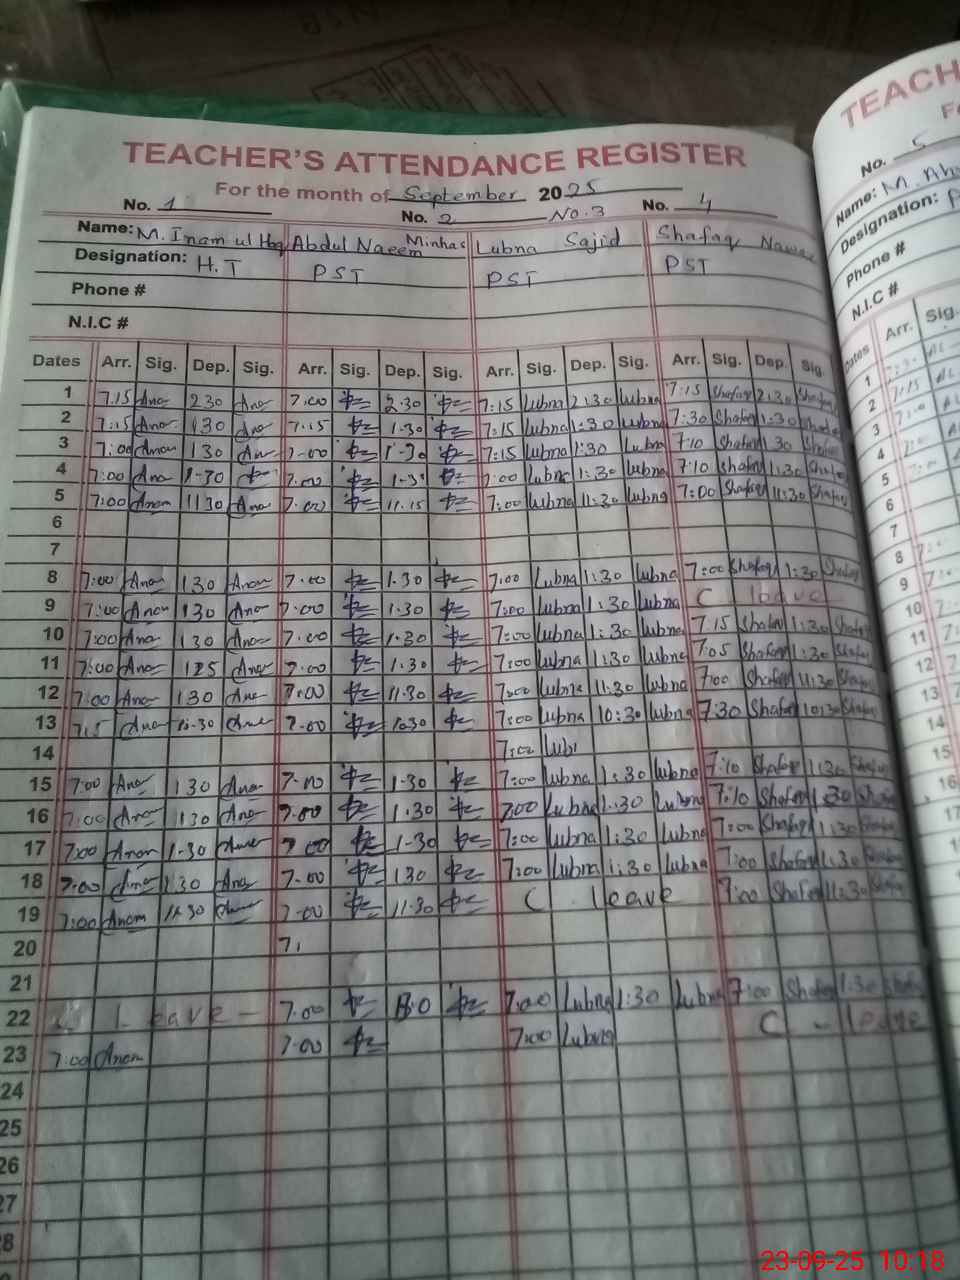 TEACHER'S ATTENDANCE REGISTER
For the month of September 2025
No. 1 No. 2 No. 3 No. 4
Name: M. Inam ul Haq Abdul Naeem Minhas Lubna Sajid Shafaq Nawaz
Designation: H.T PST PST PST
Phone #
N.I.C #
Dates Arr. Sig. Dep. Sig. Arr. Sig. Dep. Sig. Arr. Sig. Dep. Sig. Arr. Sig. Dep. Sig.
1 7.15 2 30 7.00 2.30 7:15 Lubna 2:30 Lubna 7:15 Shafaq 2:30 Shafaq
2 7:15 130 7.15 1.30 7:15 Lubna 1:30 Lubna 7:30 Shafaq 1:30 Shafaq
3 7:00 130 7.00 1.30 7:15 Lubna 1:30 Lubna 7:10 Shafaq 1 30 Shafaq
4 7:00 1-30 7.00 7:00 Lubna 1:30 Lubna 7:10 Shafaq 1:30 Shafaq
5 7:00 11 30 7.00 11.15 7:00 Lubna 11:30 Lubna 7:00 Shafaq 11:30 Shafaq
6
7
8 7:00 130 7.00 1.30 7:00 Lubna 1:30 Lubna 7:00 Shafaq 1:30 Shafaq
9 7:00 130 7.00 1.30 7:00 Lubna 1:30 Lubna C leave
10 7:00 130 7.00 1.30 7:00 Lubna 1:30 Lubna 7:15 Shafaq 1:30 Shafaq
11 7:00 125 7.00 1.30 7:00 Lubna 1:30 Lubna 7:05 Shafaq 1:30 Shafaq
12 7:00 130 7.00 11.30 7:00 Lubna 11:30 Lubna 7:00 Shafaq 11:30 Shafaq
13 7:15 10-30 7.00 10.30 7:00 Lubna 10:30 Lubna 7:30 Shafaq 10:30 Shafaq
14 7:00 Lub
15 7:00 130 7.00 1.30 7:00 Lubna 1:30 Lubna 7:10 Shafaq 1:30 Shafaq
16 7:00 130 7.00 1.30 7:00 Lubna 1:30 Lubna 7:10 Shafaq 1:30 Shafaq
17 7:00 1-30 7.00 1-30 7:00 Lubna 1:30 Lubna 7:00 Shafaq 1:30 Shafaq
18 7:00 130 7.00 130 7:00 Lubna 1:30 Lubna 7:00 Shafaq 1:30 Shafaq
19 7:00 11.30 7.00 11.30 C leave 7:00 Shafaq 11:30 Shafaq
20 7.
21
22 C leave 7.00 7:00 Lubna 1:30 Lubna 7:00 Shafaq 1:30 Shafaq
23 7:00 7.00 7:00 Lubna C leave
24
25
26
27
28
TEACH
No. 5
Name: M. Ab
Designation: P
Phone #
N.I.C #
Dates Arr. Sig.
1
2 7:15
3
4
5
6
7
8
9
10
11
12
13
14
15
16
23-09-25 10:18